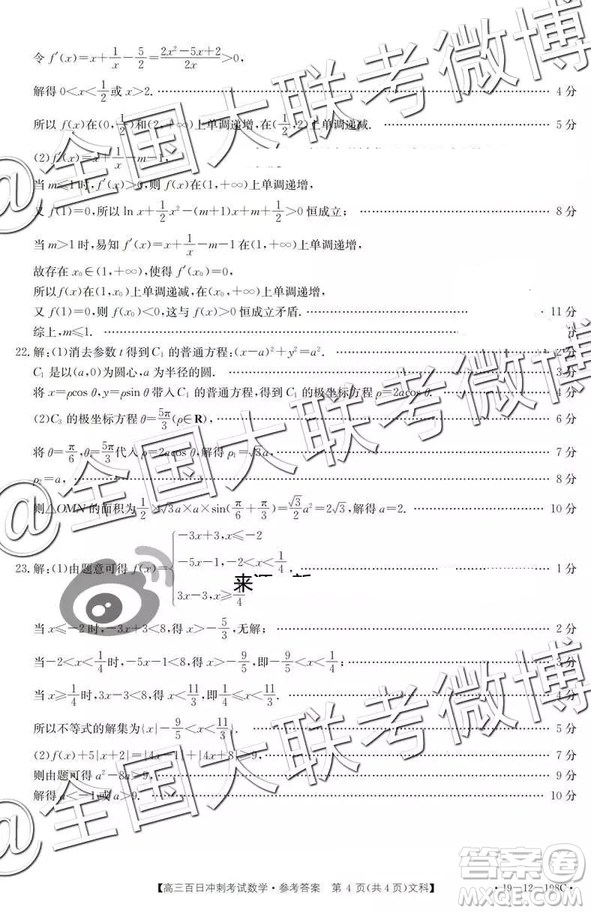 令f′(x)=x+1/x-5/2=(2x²-5x+2)/2x>0,
解得0<x<1/2或x>2. 4分
所以f(x)在(0,1/2)上单调递增,在(1/2,2)上单调递减. 5分
(2)f′(x)=x+1/x-m-1,
当m≤1时,f′(x)>0,f(x)在(1,+∞)上单调递增,
又f(1)=0,所以ln x+1/2x²-(m+1)x+m+1/2>0恒成立; 8分
当m>1时,易知f′(x)=x+1/x-m-1在(1,+∞)上单调递增,
故存在x₀∈(1,+∞),使得f′(x₀)=0,
所以f(x)在(1,x₀)上单调递减,在(x₀,+∞)上单调递增,
又f(1)=0,则f(x₀)<0,这与f(x)>0恒成立矛盾. 11分
综上,m≤1.
22.解:(1)消去参数t得到C₁的普通方程:(x-a)²+y²=a². 2分
C₁是以(a,0)为圆心,a为半径的圆. 3分
将x=ρcos θ,y=ρsin θ带入C₁的普通方程,得到C₁的极坐标方程为ρ=2acos θ.
(2)C₃的极坐标方程θ=5π/3(ρ∈R),
将θ=π/6,θ=5π/3代入ρ=2acos θ,解得ρ₁=√3a,
ρ₂=a,
则△OMN的面积为1/2×√3a×a×sin(π/6+π/3)=√3/2a²=2√3,解得a=2. 10分
23.解:(1)由题意可得f(x)={-3x+3,x≤-2
-5x-1,-2<x<1/4
3x-3,x≥1/4 1分
来源
当x≤-2时,-3x+3<8,得x>-5/3,无解; 2分
当-2<x<1/4时,-5x-1<8,得x>-9/5,即-9/5<x<1/4; 3分
当x≥1/4时,3x-3<8,得x<11/3,即1/4≤x<11/3. 4分
所以不等式的解集为{x|-9/5<x<11/3}. 5分
(2)f(x)+5|x+2|=|4x-1|+|4x+8|≥9, 7分
则由题可得a²-8a>9, 9分
解得a<-1或a>9. 10分
【高三百日冲刺考试数学·参考答案 第4页(共4页)文科】
·19-12-198C·
@全国大联考微博
@全国大联考微博
@全国大联考微博